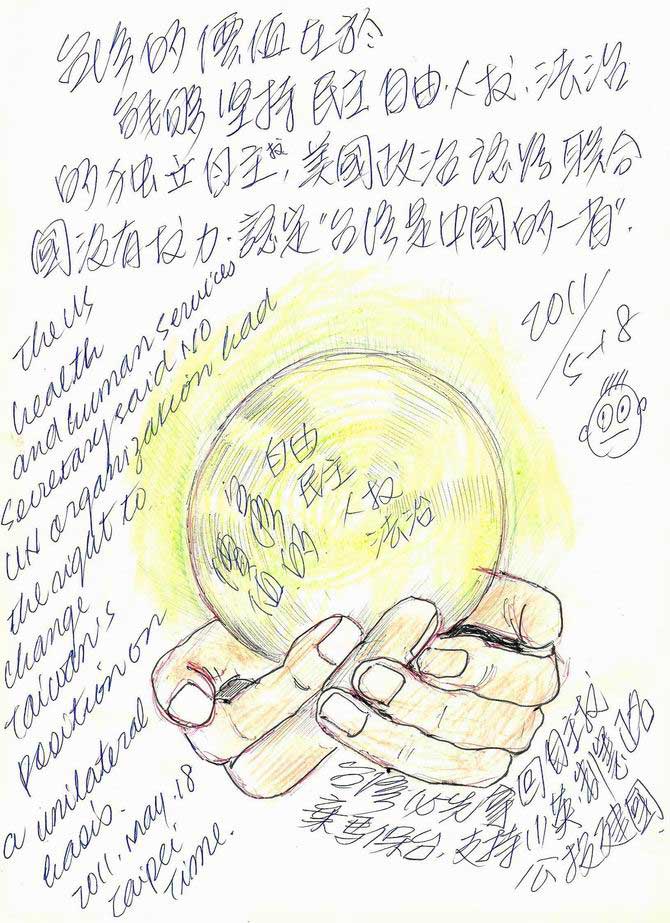 台湾的價值在於
能夠坚持民主自由.人权.法治
的独立自主权,美國政治認為联合
國沒有权力.認定"台湾是中國的一省".
2011/5-18
The US
health
and human services
secretary said NO
UN organization had
the right to
change
Taiwan's
position on
a unilateral
basis.
2011. May. 18
Taipei
Time.
自由
民主
人权
法治
台灣必先奪回自主权
棄馬保台.支持小英.制憲.功
公投建國